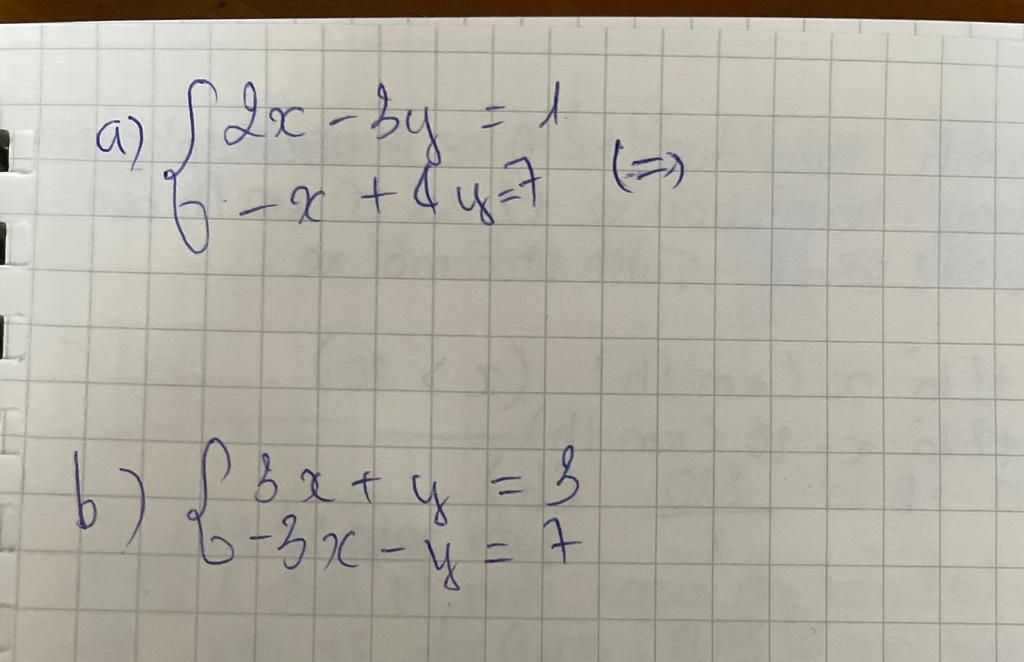 a) { 2x - 3y = 1
- x + 4y = 7 (=>)
b) { 3x + y = 3
-3x - y = 7